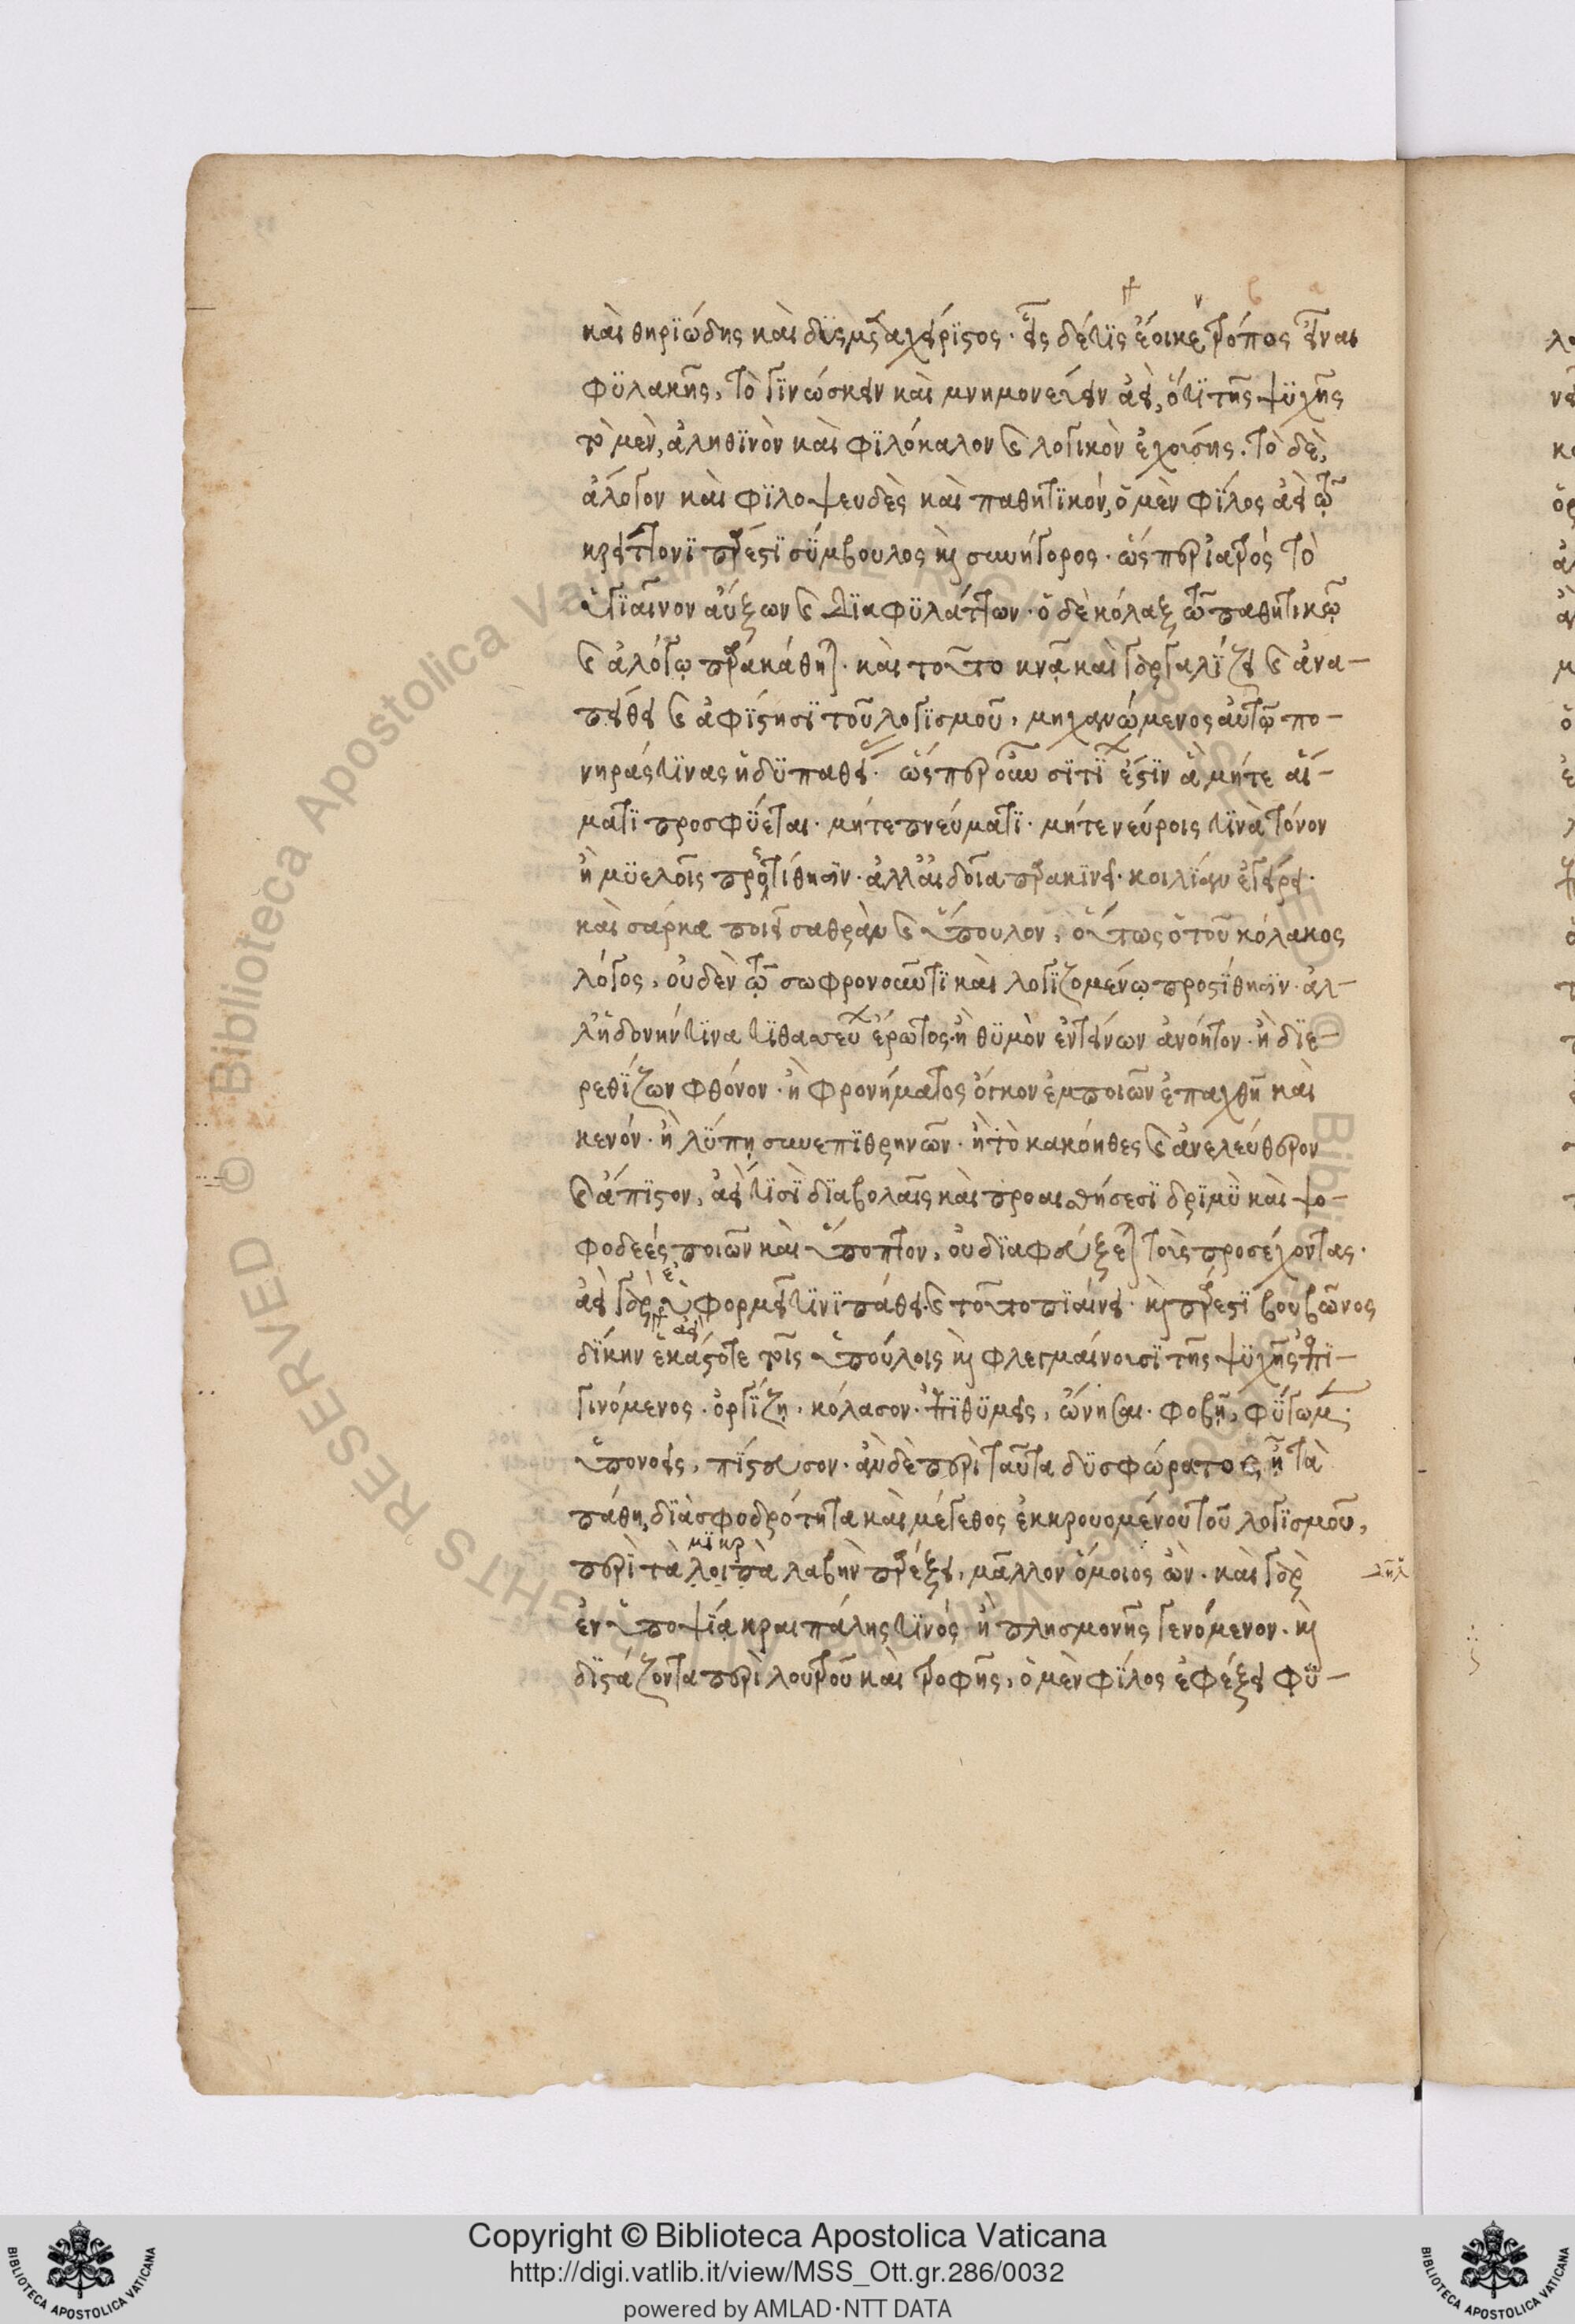 καὶ θηρϊώδης καὶ δυσμεταχείρϊστος· εἷς δέ τις ἔοικε τρόπος εἶναι
φϋλακῆς, τὸ γϊνώσκειν καὶ μνημονεύειν ἀεὶ, ὅτϊ τῆς ψϋχῆς
τὸ μὲν, ἀληθϊνὸν καὶ φϊλόκαλον καὶ λογικὸν ἐχούσης. τὸ δὲ,
ἄλογον καὶ φϊλοψευδὲς καὶ παθητϊκόν, ὁ μὲν φίλος ἀεὶ τῷ
κρείττονϊ πάρεστϊ σύμβουλος καὶ συνήγορος· ὥσπερ ἰατρὸς τὸ
ὑγϊαῖνον αὔξων καὶ δϊαφϋλάττων· ὁ δὲ κόλαξ τῷ παθητικῷ
καὶ ἀλόγῳ παρακάθηται· καὶ τοῦτο κνᾷ καὶ γαργαλΐζει καὶ ἀνα-
πείθει καὶ ἀφϊστησϊ τοῦ λογϊσμοῦ, μηχανώμενος αὐτῷ πο-
νηράς τϊνας ἡδϋπαθεί· ὥσπερ οὖν σϊτϊ ἐστϊν ἃ μήτε αἵ-
ματϊ προσφΰεται· μήτε πνεύματϊ· μήτε νεύροις τϊνὰ τόνον
ἢ μϋελοῖς προστίθησιν· ἀλλ' αἰδοῖα παρακϊνεῖ· κοιλίαν ἐγείρει·
καὶ σάρκα ποιεῖ σαθρὰν καὶ ὕπουλον, οὕτως ὁ τοῦ κόλακος
λόγος, οὐδὲν τῷ σωφρονοῦντϊ καὶ λογϊζομένῳ προστίθησιν· ἀλ-
λ' ἡδονήν τϊνα τϊθασεύ ἔρωτος· ἢ θϋμὸν ἐντείνων ἀνόητον· ἢ δϊε-
ρεθΐζων φθόνον· ἢ φρονήματος ὄγκον ἐμποιῶν ἐπαχθῆ καὶ
κενόν· ἢ λύπῃ συνεπϊθρηνῶν· ἢ τὸ κακόηθες καὶ ἀνελεύθερον
καὶ ἄπϊστον, ἀεί τϊσϊ δϊαβολαῖς καὶ προαισθήσεσϊ δρϊμὺ καὶ ψο-
φοδεές ποιῶν καὶ ὕποπτον, οὐ δϊαφεύξεται τοὺς προσέχοντας·
ἀεὶ γάρ ὑφορμεῖ τϊνϊ πάθει· καὶ τοῦτο πϊαίνει· καὶ πάρεστϊ βουβῶνος
δίκην ἑκάστοτε τοῖς ὑπούλοις καὶ φλεγμαίνουσϊ τῆς ψϋχῆς ἐπϊ-
γινόμενος· ὀργΐζῃ· κόλασον· ἐπϊθϋμεῖς, ὤνησαι· φοβῇ, φύγωμεν·
ὑπονοεῖς, πΐστευσον· ἂν δὲ περὶ ταῦτα δϋσφώρατος ᾖ τὰ
πάθη, δϊὰ σφοδρότητα καὶ μέγεθος ἐκκρουομένου τοῦ λογϊσμοῦ,
μικρ
περὶ τὰ λοιπὰ λαβὴν παρέξει, μᾶλλον ὅμοιος ὤν· καὶ γὰρ
ἐν ὑποψίᾳ κραιπάλης τϊνός ἢ πλησμονῆς γενόμενον· καὶ
δϊστάζοντα περὶ λουτροῦ καὶ τροφῆς, ὁ μὲν φίλος ἐφέξει φϋ-
Copyright © Biblioteca Apostolica Vaticana
http://digi.vatlib.it/view/MSS_Ott.gr.286/0032
powered by AMLAD·NTT DATA